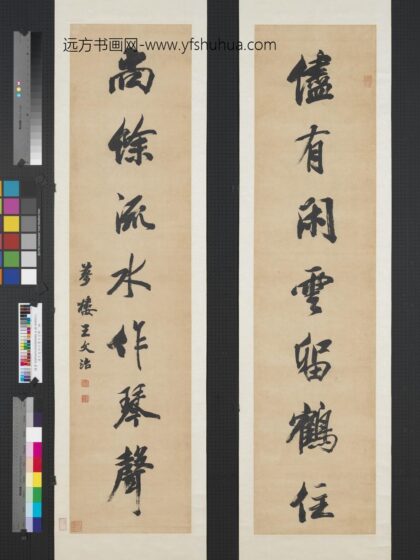 远方书画网-www.yfshuhua.com
儘有閑雲留鶴住
尚餘流水作琴聲
夢樓王文治